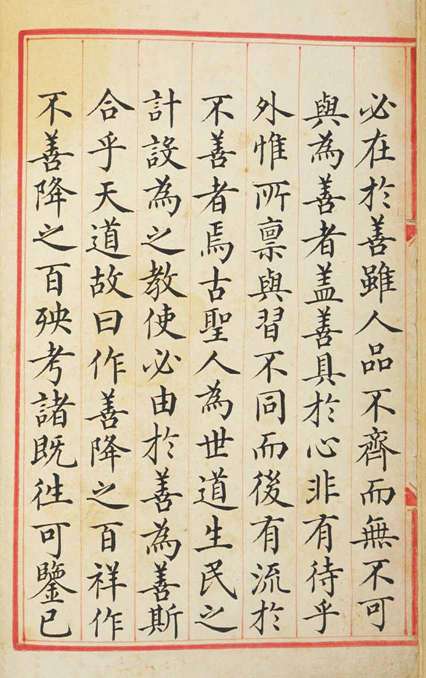 必在於善雖人品不齊而無不可
與為善者蓋善具於心非有待乎
外惟所禀與習不同而後有流於
不善者焉古聖人為世道生民之
計設為之教使必由於善為善斯
合乎天道故曰作善降之百祥作
不善降之百殃考諸既徃可鑒已